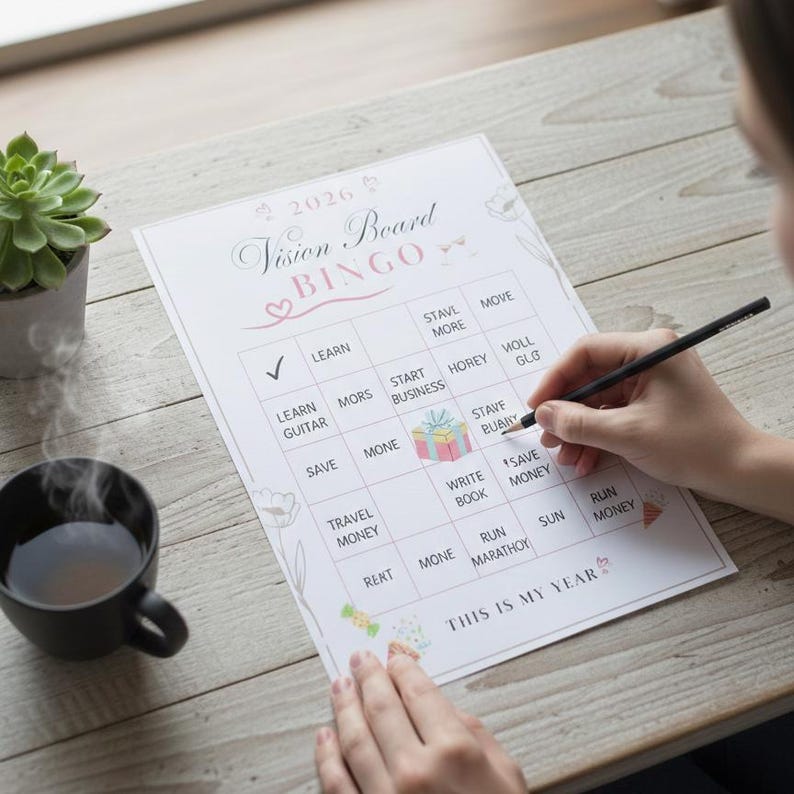 2026
Vision Board
BINGO
✓
LEARN
STAVE
MORE
MOVE
LEARN
GUITAR
MORS
START
BUSINESS
HOREY
SAVE
MONE
TRAVEL
MONEY
WRITE
BOOK
SAVE
MONEY
RENT
MONE
RUN
MARATHOY
SUN
RUN
MONEY
THIS IS MY YEAR